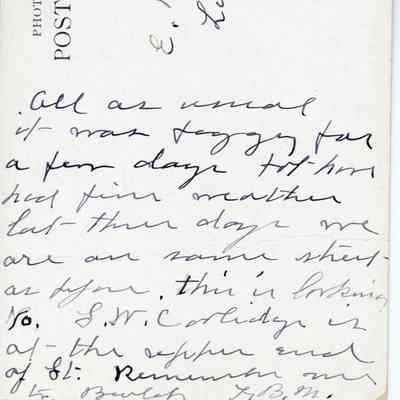 PHOTO
POST
E.
All as usual
it was foggy for
a few days but have
had fine weather
last three days we
are on same street
as before. this is looking
No. S.W. Coolidge is
at the upper end
of St. Remember me
to Beulah L.B.M.